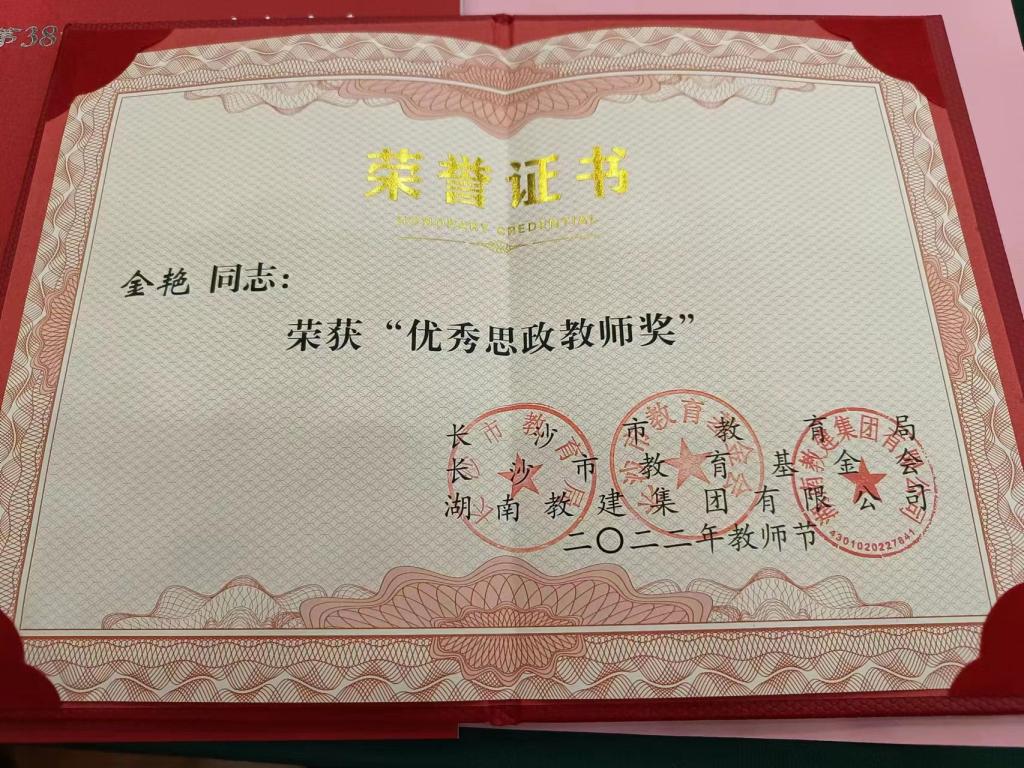 第38
荣誉证书
HONORARY CREDENTIAL
金艳 同志：
荣获“优秀思政教师奖”
长沙市教育局
长沙市教育基金会
湖南教建集团有限公司
二〇二二年教师节
长沙市教育局
长沙市教育基金会
湖南教建集团有限公司
4301020227841